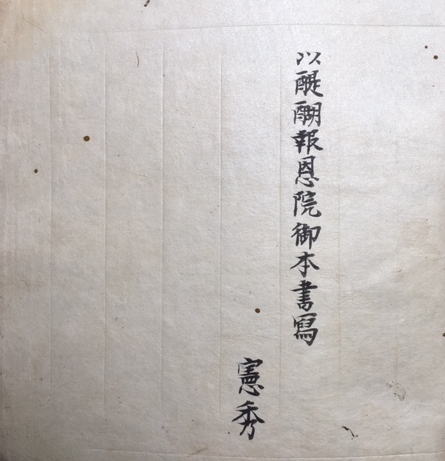 以醍醐報恩院御本書寫
憲秀